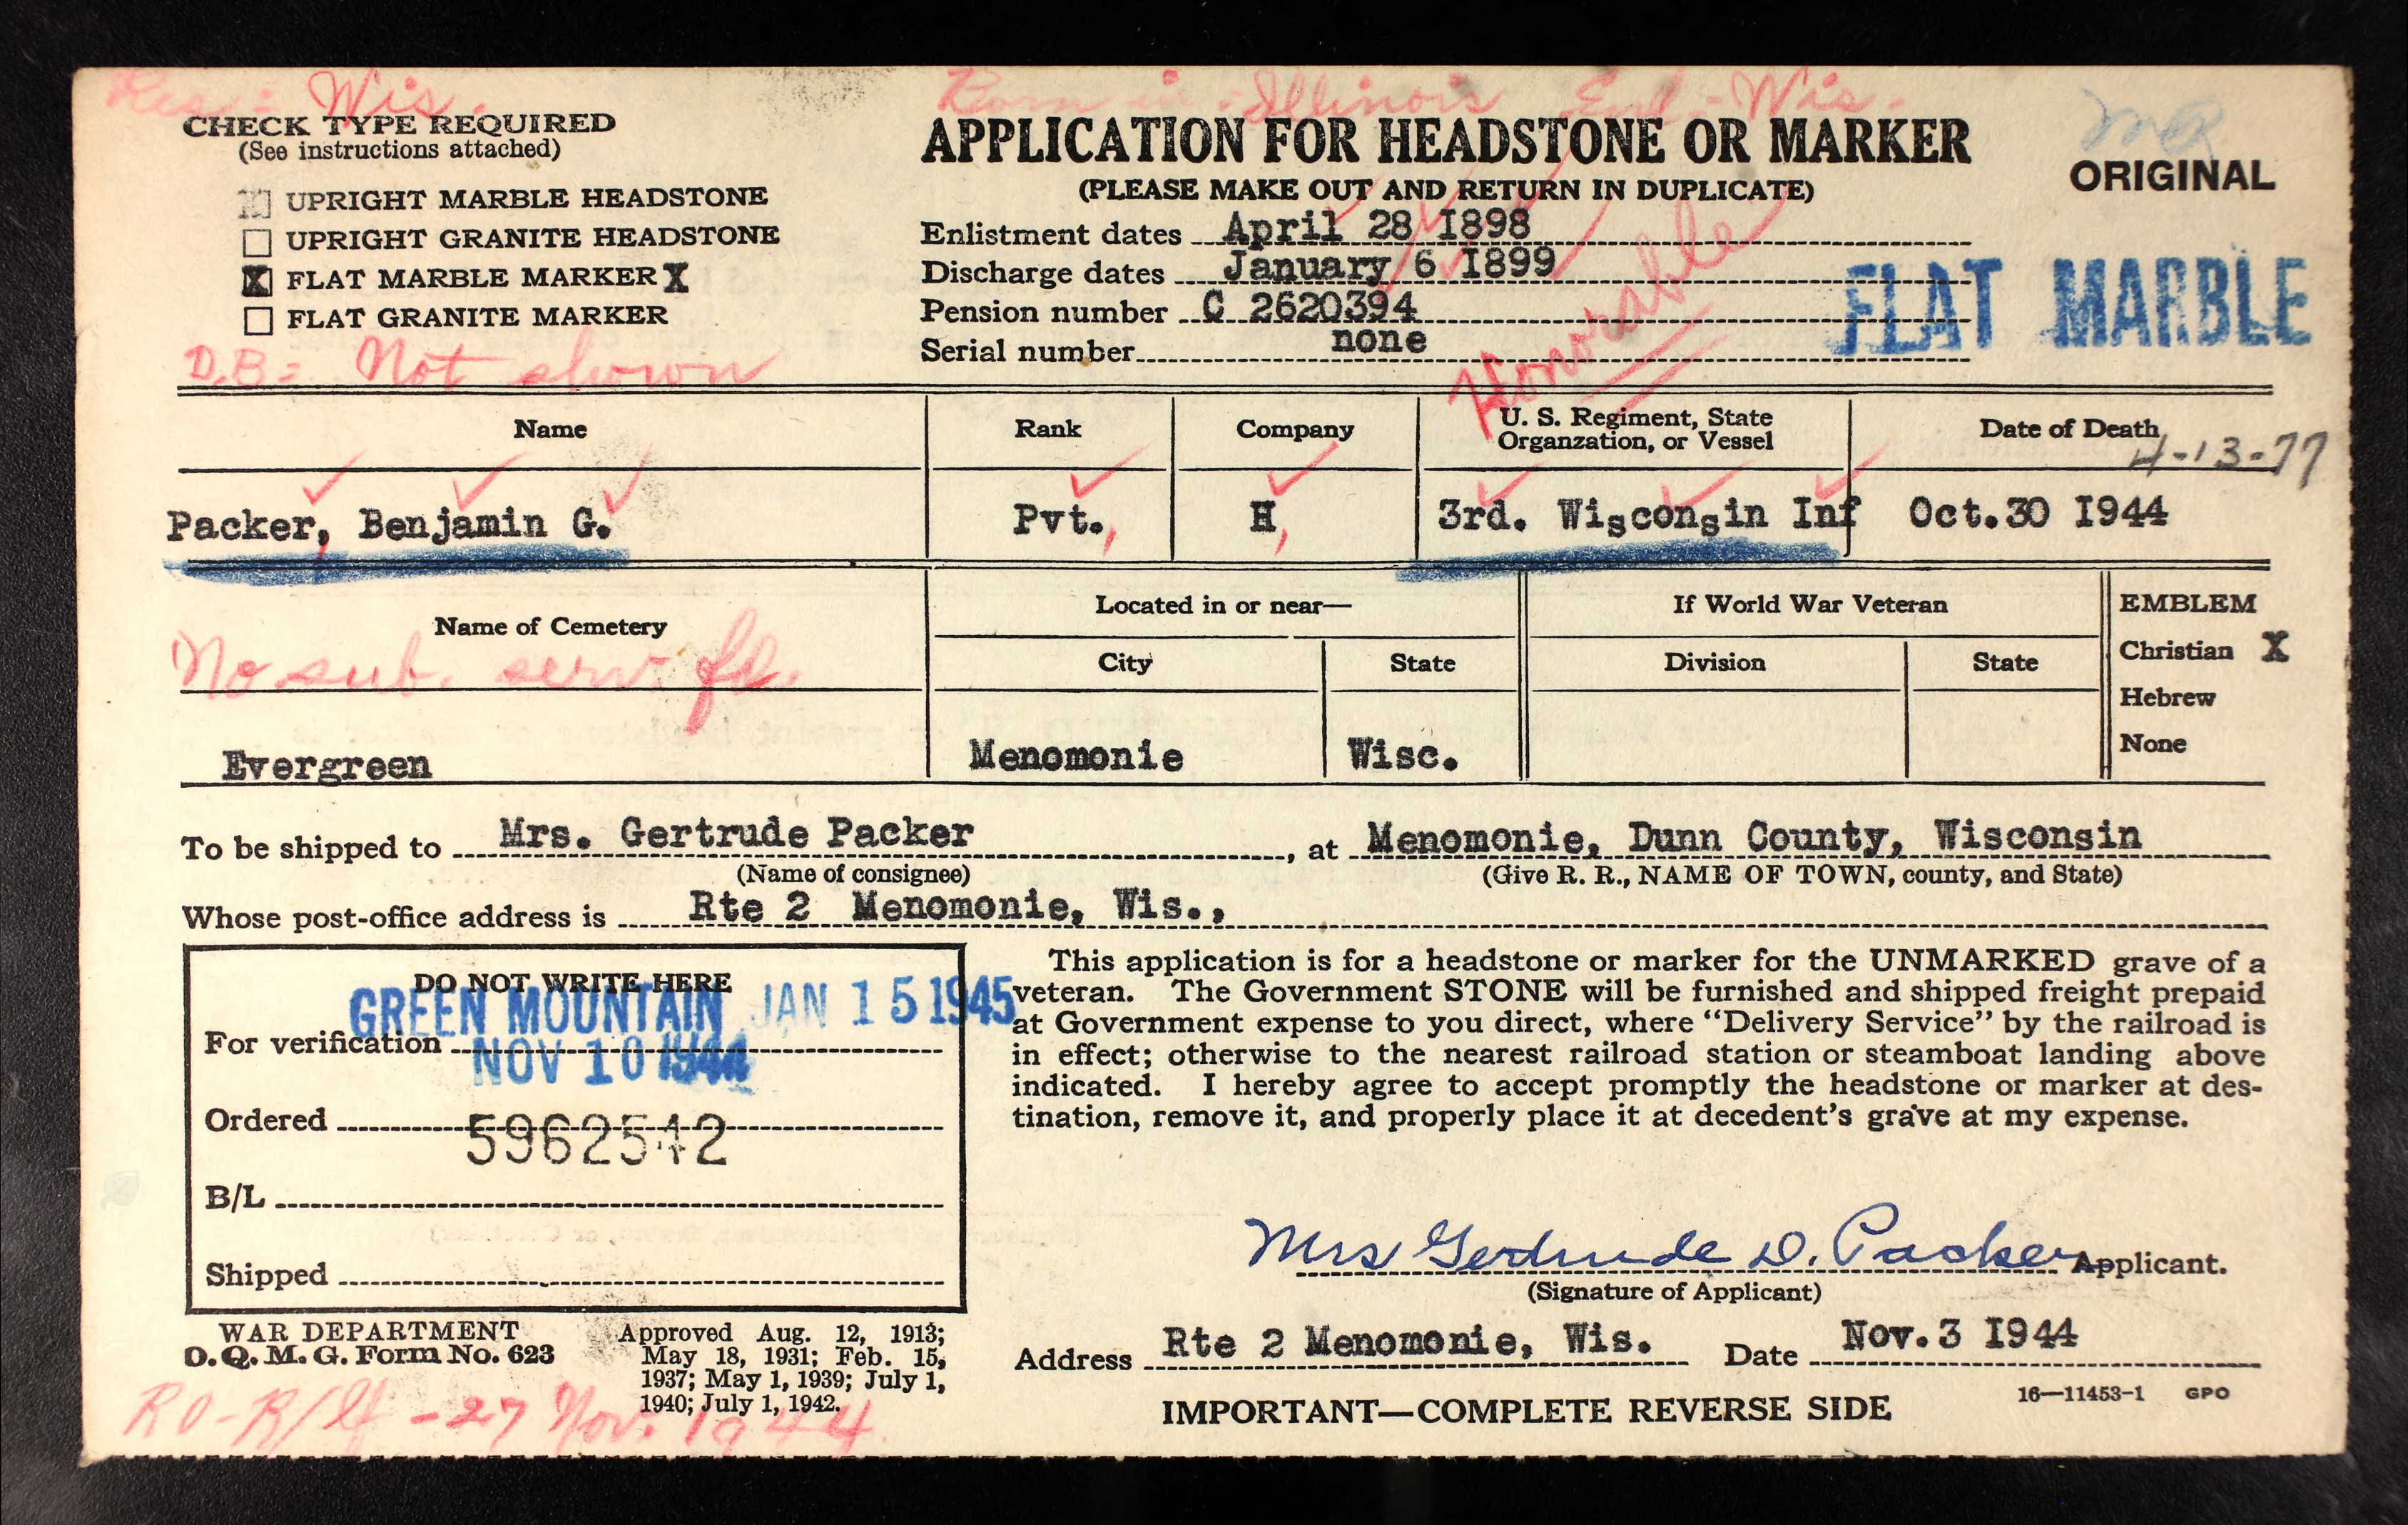 Res: Wis.
Born in: Illinois Enl - Wis.
CHECK TYPE REQUIRED
(See instructions attached)
UPRIGHT MARBLE HEADSTONE
UPRIGHT GRANITE HEADSTONE
X FLAT MARBLE MARKER X
FLAT GRANITE MARKER
D.B= Not shown
APPLICATION FOR HEADSTONE OR MARKER
(PLEASE MAKE OUT AND RETURN IN DUPLICATE)
ORIGINAL
Enlistment dates April 28 1898
Discharge dates January 6 1899
Pension number C 2620394
Serial number none
Honorable
FLAT MARBLE
Name Rank Company U. S. Regiment, State Organzation, or Vessel Date of Death
4-13-77
Packer, Benjamin G. Pvt. H 3rd. Wisconsin Inf Oct.30 1944
Name of Cemetery Located in or near— If World War Veteran EMBLEM
City State Division State
Christian X
Hebrew
None
No sub. serv. fd.
Evergreen Menomonie Wisc.
To be shipped to Mrs. Gertrude Packer, at Menomonie, Dunn County, Wisconsin
(Name of consignee) (Give R. R., NAME OF TOWN, county, and State)
Whose post-office address is Rte 2 Menomonie, Wis.,
DO NOT WRITE HERE
GREEN MOUNTAIN JAN 15 1945
For verification NOV 10 1944
Ordered 5962542
B/L
Shipped
This application is for a headstone or marker for the UNMARKED grave of a
veteran. The Government STONE will be furnished and shipped freight prepaid
at Government expense to you direct, where "Delivery Service" by the railroad is
in effect; otherwise to the nearest railroad station or steamboat landing above
indicated. I hereby agree to accept promptly the headstone or marker at des-
tination, remove it, and properly place it at decedent's grave at my expense.
Mrs Gertrude D. Packer Applicant.
(Signature of Applicant)
Address Rte 2 Menomonie, Wis. Date Nov.3 1944
WAR DEPARTMENT
O. Q. M. G. Form No. 623
Approved Aug. 12, 1913;
May 18, 1931; Feb. 15,
1937; May 1, 1939; July 1,
1940; July 1, 1942.
27 Nov. 1944
IMPORTANT—COMPLETE REVERSE SIDE
16—11453-1 GPO